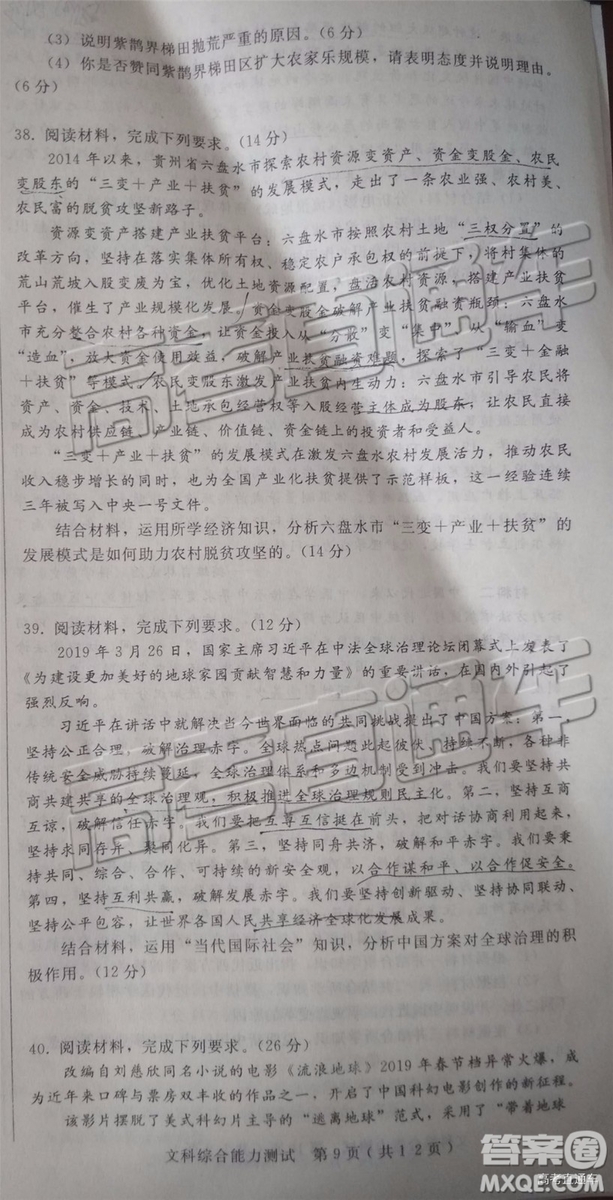 (3) 说明紫鹊界梯田抛荒严重的原因。(6 分)
(4) 你是否赞同紫鹊界梯田区扩大农家乐规模，请表明态度并说明理由。
(6 分)
38. 阅读材料，完成下列要求。(14 分)
2014 年以来，贵州省六盘水市探索农村资源变资产、资金变股金、农民
变股东的“三变＋产业＋扶贫”的发展模式，走出了一条农业强、农村美、
农民富的脱贫攻坚新路子。
资源变资产搭建产业扶贫平台：六盘水市按照农村土地“三权分置”的
改革方向，坚持在落实集体所有权、稳定农户承包权的前提下，将村集体的
荒山荒坡入股变废为宝，优化土地资源配置，盘活农村资源，搭建产业扶贫
平台，催生了产业规模化发展。资金变股金破解产业扶贫融资瓶颈：六盘水
市充分整合农村各种资金，让资金投入从“分散”变“集中”、从“输血”变
“造血”，放大资金使用效益，破解产业扶贫融资难题，探索了“三变＋金融
＋扶贫”等模式。农民变股东激发产业扶贫内生动力：六盘水市引导农民将
资产、资金、技术、土地承包经营权等入股经营主体成为股东，让农民直接
成为农村供应链、产业链、价值链、资金链上的投资者和受益人。
“三变＋产业＋扶贫”的发展模式在激发六盘水农村发展活力，推动农民
收入稳步增长的同时，也为全国产业化扶贫提供了示范样板，这一经验连续
三年被写入中央一号文件。
结合材料，运用所学经济知识，分析六盘水市“三变＋产业＋扶贫”的
发展模式是如何助力农村脱贫攻坚的。(14 分)
39. 阅读材料，完成下列要求。(12 分)
2019 年 3 月 26 日，国家主席习近平在中法全球治理论坛闭幕式上发表了
《为建设更加美好的地球家园贡献智慧和力量》的重要讲话，在国内外引起了
强烈反响。
习近平在讲话中就解决当今世界面临的共同挑战提出了中国方案：第一，
坚持公正合理，破解治理赤字。全球热点问题此起彼伏、持续不断，各种非
传统安全威胁持续蔓延，全球治理体系和多边机制受到冲击。我们要坚持共
商共建共享的全球治理观，积极推进全球治理规则民主化。第二，坚持互商
互谅，破解信任赤字。我们要把互尊互信挺在前头，把对话协商利用起来，
坚持求同存异、聚同化异。第三，坚持同舟共济，破解和平赤字。我们要秉
持共同、综合、合作、可持续的新安全观，以合作谋和平、以合作促安全。
第四，坚持互利共赢，破解发展赤字。我们要坚持创新驱动、坚持协同联动、
坚持公平包容，让世界各国人民共享经济全球化发展成果。
结合材料，运用“当代国际社会”知识，分析中国方案对全球治理的积
极作用。(12 分)
40. 阅读材料，完成下列要求。(26 分)
改编自刘慈欣同名小说的电影《流浪地球》2019 年春节档异常火爆，成
为近年来口碑与票房双丰收的作品之一，开启了中国科幻电影创作的新征程。
该影片摆脱了美式科幻片主导的“逃离地球”范式，采用了“带着地球
文科综合能力测试 第 9 页 (共 1 2 页)
高考直通车
高考直通车
高考直通车
答案圈
MXQE.COM
高考直通车